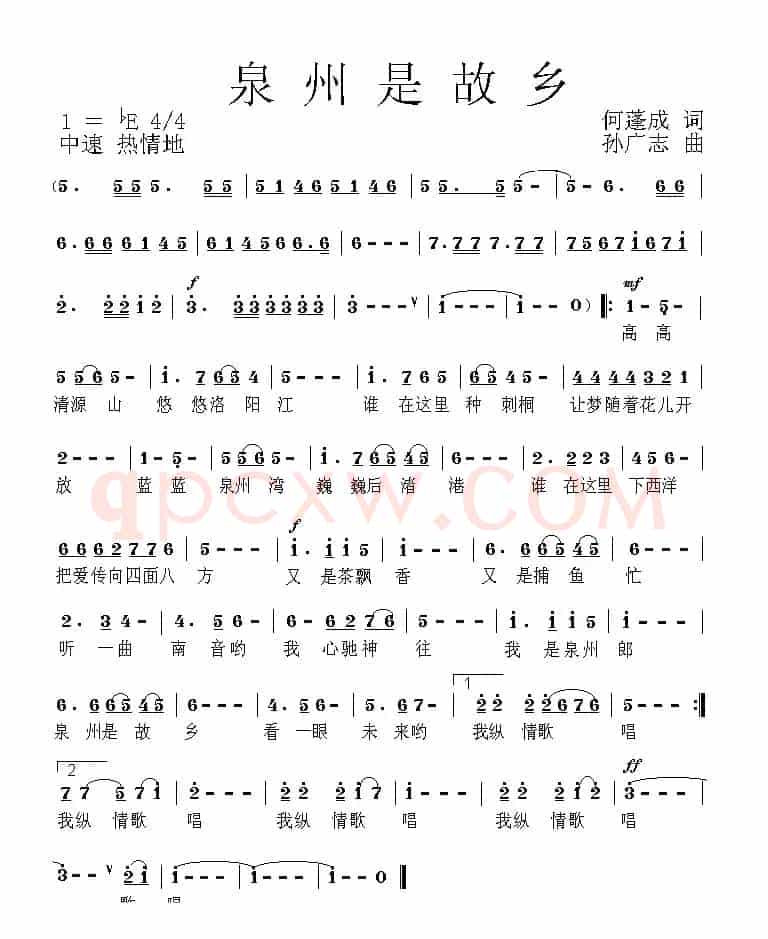 泉州是故乡
1 = ♭E 4/4 何蓬成 词
中速 热情地 孙广志 曲
(5. 55 5. 55 | 5146 5146 | 5. 55- | 5-6. 66 |
6.666 6145 | 6145666.6 | 6--- | 7.777 7.777 | 7567i67i |
f mf
2. 22i2 | 3. 33333333 | 3---v | i--- | i--0) ‖: 1-5- |
高 高
5565- | i. 7654 | 5--- | i. 765 | 5645- | 44444321 |
清源 山 悠 悠洛 阳 江 谁 在这里 种 刺桐 让梦随着花儿开
2--- | 1-5- | 5565- | i.76545 | 6--- | 2. 223 | 456- |
放 蓝 蓝 泉州 湾 巍 巍后 渚 港 谁 在这里 下西洋
qpcxw.com
f
66627776 | 5--- | i. ii5 | 6--- | 6. 66545 | 6--- |
把爱传向四面八 方 又 是茶飘 香 又 是捕 鱼 忙
2. 34- | 4. 56- | 6-6276 | 5--- | i. ii5 | i. i5- |
听 一曲 南 音哟 我 心驰神 往 我 是泉州 郎
1
6. 66545 | 6--- | 4. 56- | 5. 67- | 22 22676 | 5--- :‖
泉 州是 故 乡 看 一眼 未 来哟 我纵 情歌 唱
2 ff
77 57i | 2--- | 22 22i7 | i--- | 22 22i2 | 3--- |
我纵 情歌 唱 我纵 情歌 唱 我纵 情歌 唱
3--v 2i | i--- | i--- | i--0 ‖
歌 唱